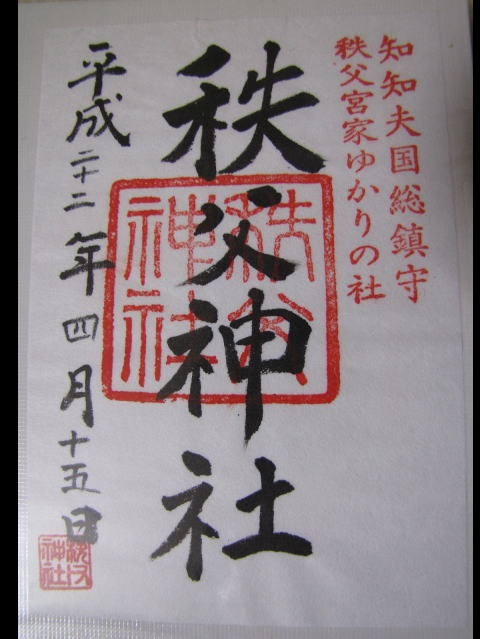 知知夫国総鎮守
秩父宮家ゆかりの社
秩父神社
平成二十二年四月十五日
秩父神社
秩父神社